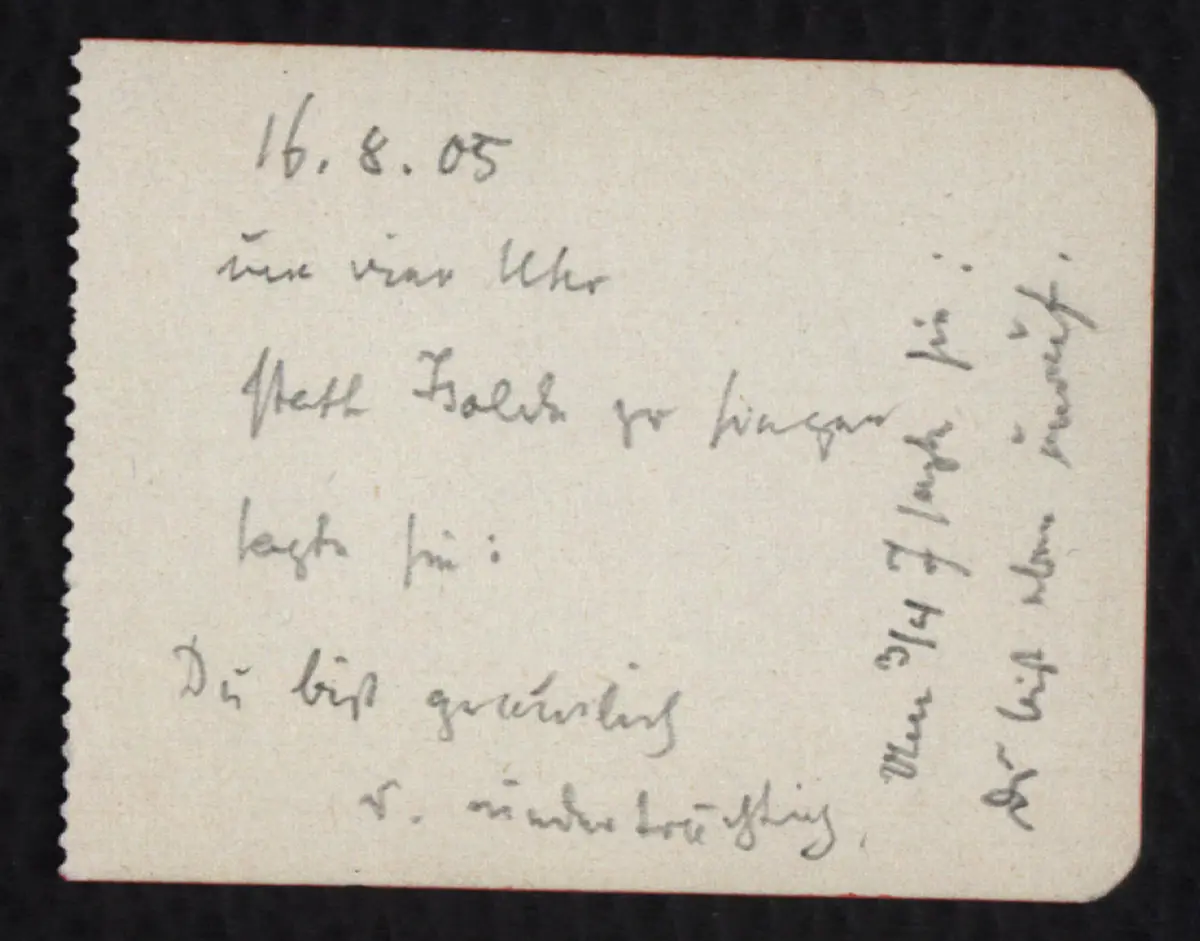 16. 8. 05
um vier Uhr
statt Isolde zu singen
sagte sie:
Du bist grauslich
u. niederträchtig.
Um 3/4 7 sagte sie:
Du bist eben